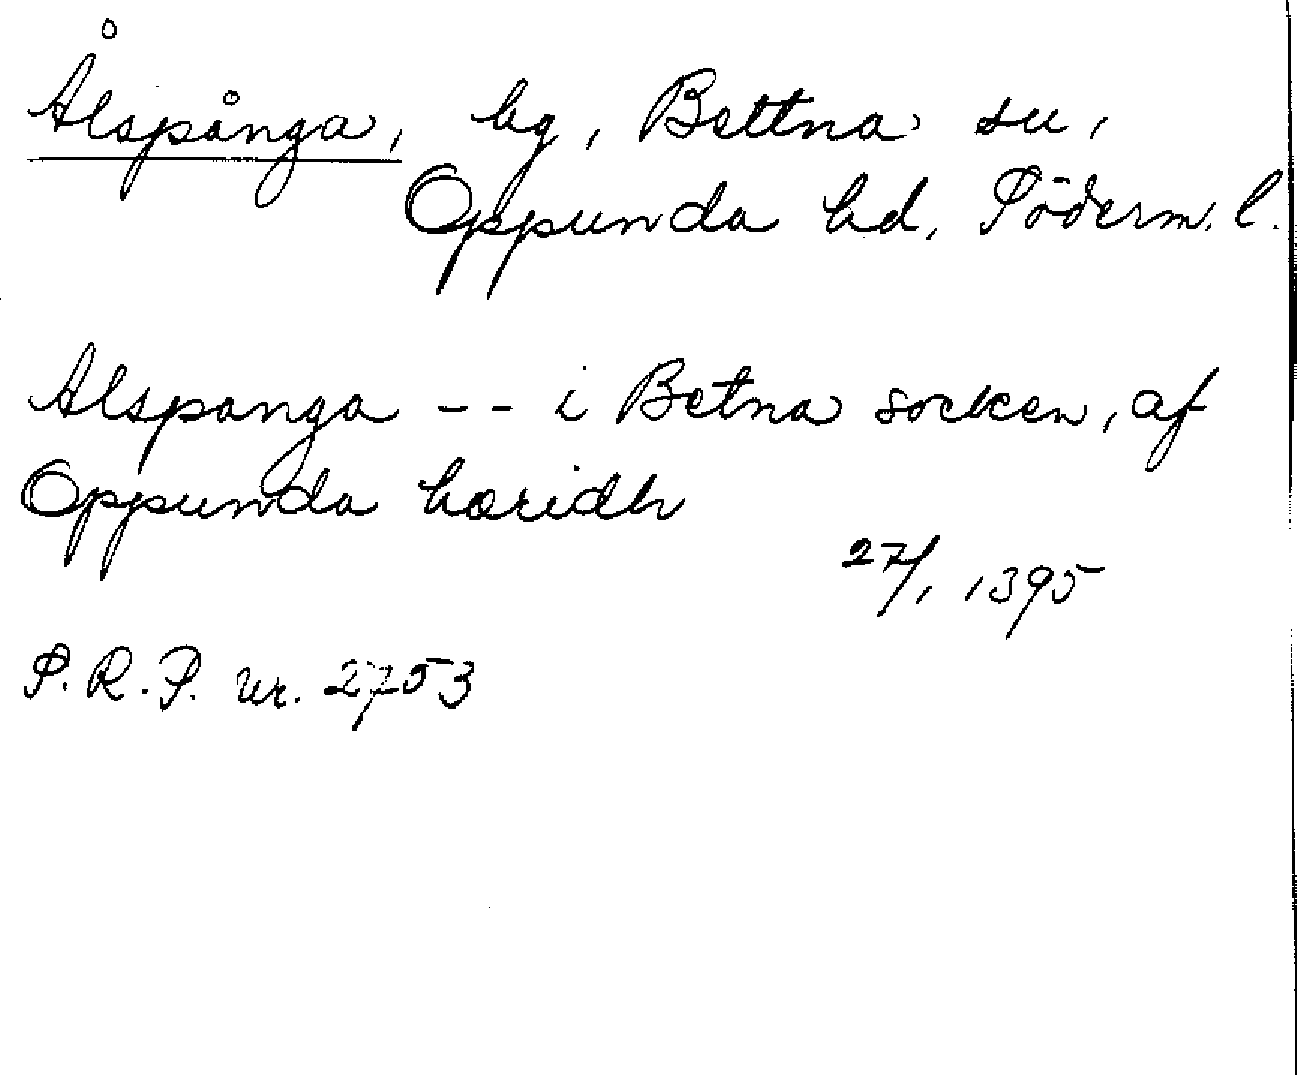 Ålspånga, by, Bettna sn,
Oppunda hd, Söderm. l.
Alspanga -- i Betna socken, af
Oppunda hæridh
27/1 1395
S. R. P. nr. 2753